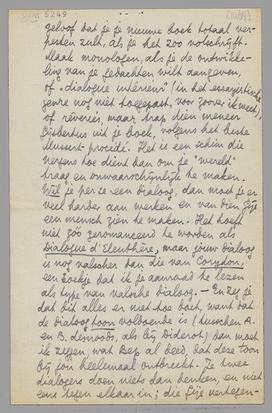 5249
geloof dat je je nieuwe boek totaal ver-
pesten zult, als je het zoo volschrijft.
Maak monologen, als je de ontwikke-
ling van je gedachten wilt aangeven,
of "dialogue intérieur" (in het essayistische
genre nog niet toegepast, voor zoover ik weet),
of rêverieën, maar trap dien meneer
uit je boek, volgens het beste
procédé. Het is een schim die
nergens toe dient dan om je "wereld"
traag en onwaarschijnlijk te maken.
Wil je per se een dialoog, dan moet je er
veel harder aan werken en van hen bije
een mensch zien te maken. Het hoeft
niet zóó geromanceerd te worden als
Dialogue d'Eleuthère, maar jouw dialoog
is nog valscher dan die van Corydon,
een boekje dat ik je aanraad te lezen
als type van valsche dialoog. — En zeg je
dat dit alles er niet toe doet, want dat
de dialoog toon voldoende is (tusschen A.
en B. desnoods, als bij Diderot) dan moet
ik zeggen, wat Bep al deed, dat deze toon
bij jou heelemaal ontbreekt. Je twee
dialogers doen niets dan denken, en niet
eens tegen elkaar in; die